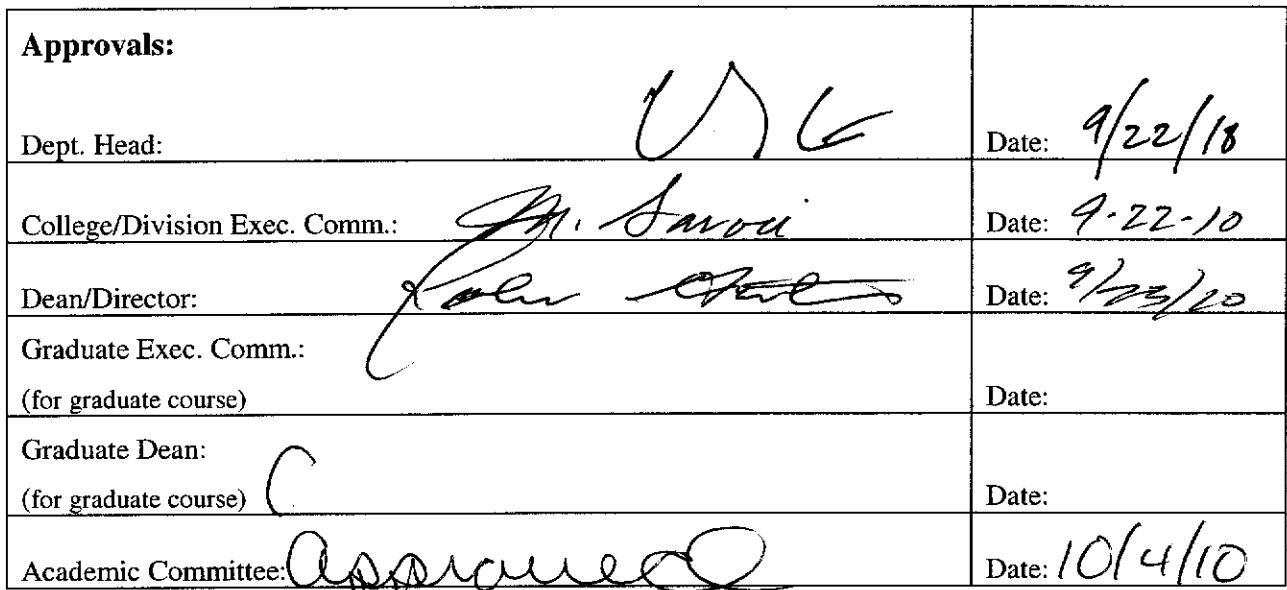 Approvals:
Dept. Head: Date: 9/22/18
College/Division Exec. Comm.: M. Savoie Date: 9-22-10
Dean/Director: Date: 9/23/20
Graduate Exec. Comm.:
(for graduate course) Date:
Graduate Dean:
(for graduate course) Date:
Academic Committee: Approved Date: 10/4/10